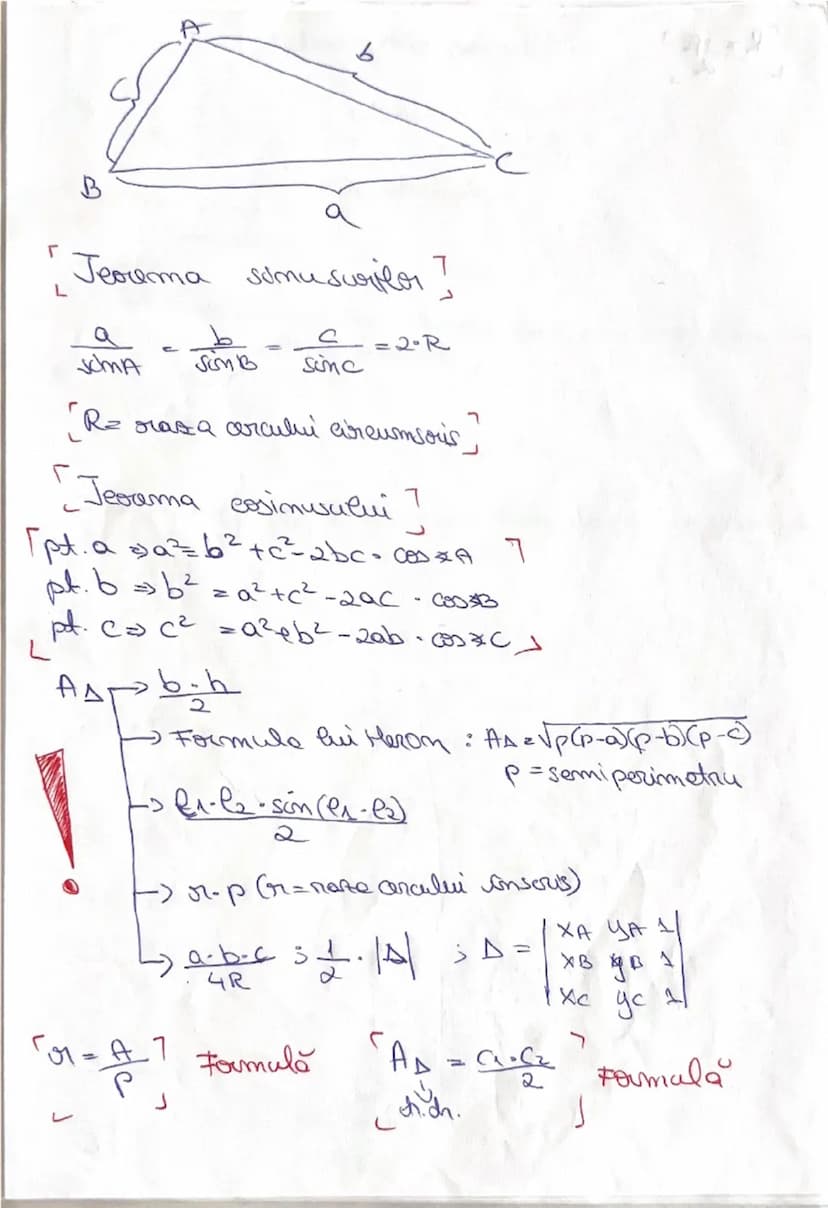 A
b
c
B
C
a
Teorema sinusurilor
a/sinA = b/sinB = c/sinC = 2·R
R= raza cercului circumscris
Teorema cosinusului
pt. a ⇒ a² = b² + c² - 2bc · cos∢A
pt. b ⇒ b² = a² + c² - 2ac · cos∢B
pt. c ⇒ c² = a² + b² - 2ab · cos∢C
A∆ → b·h/2
→ Formula lui Heron : A∆ = √p(p-a)(p-b)(p-c)
p = semiperimetru
→ l1·l2·sin(l1·l2)/2
! → r·p (r = raza cercului înscris)
→ a·b·c/4R ; 1/2 · |∆| ; ∆ = | xA yA 1 |
| xB yB 1 |
| xC yC 1 |
r = A/p Formulă A∆ = c1·c2/2 Formulă
dr.